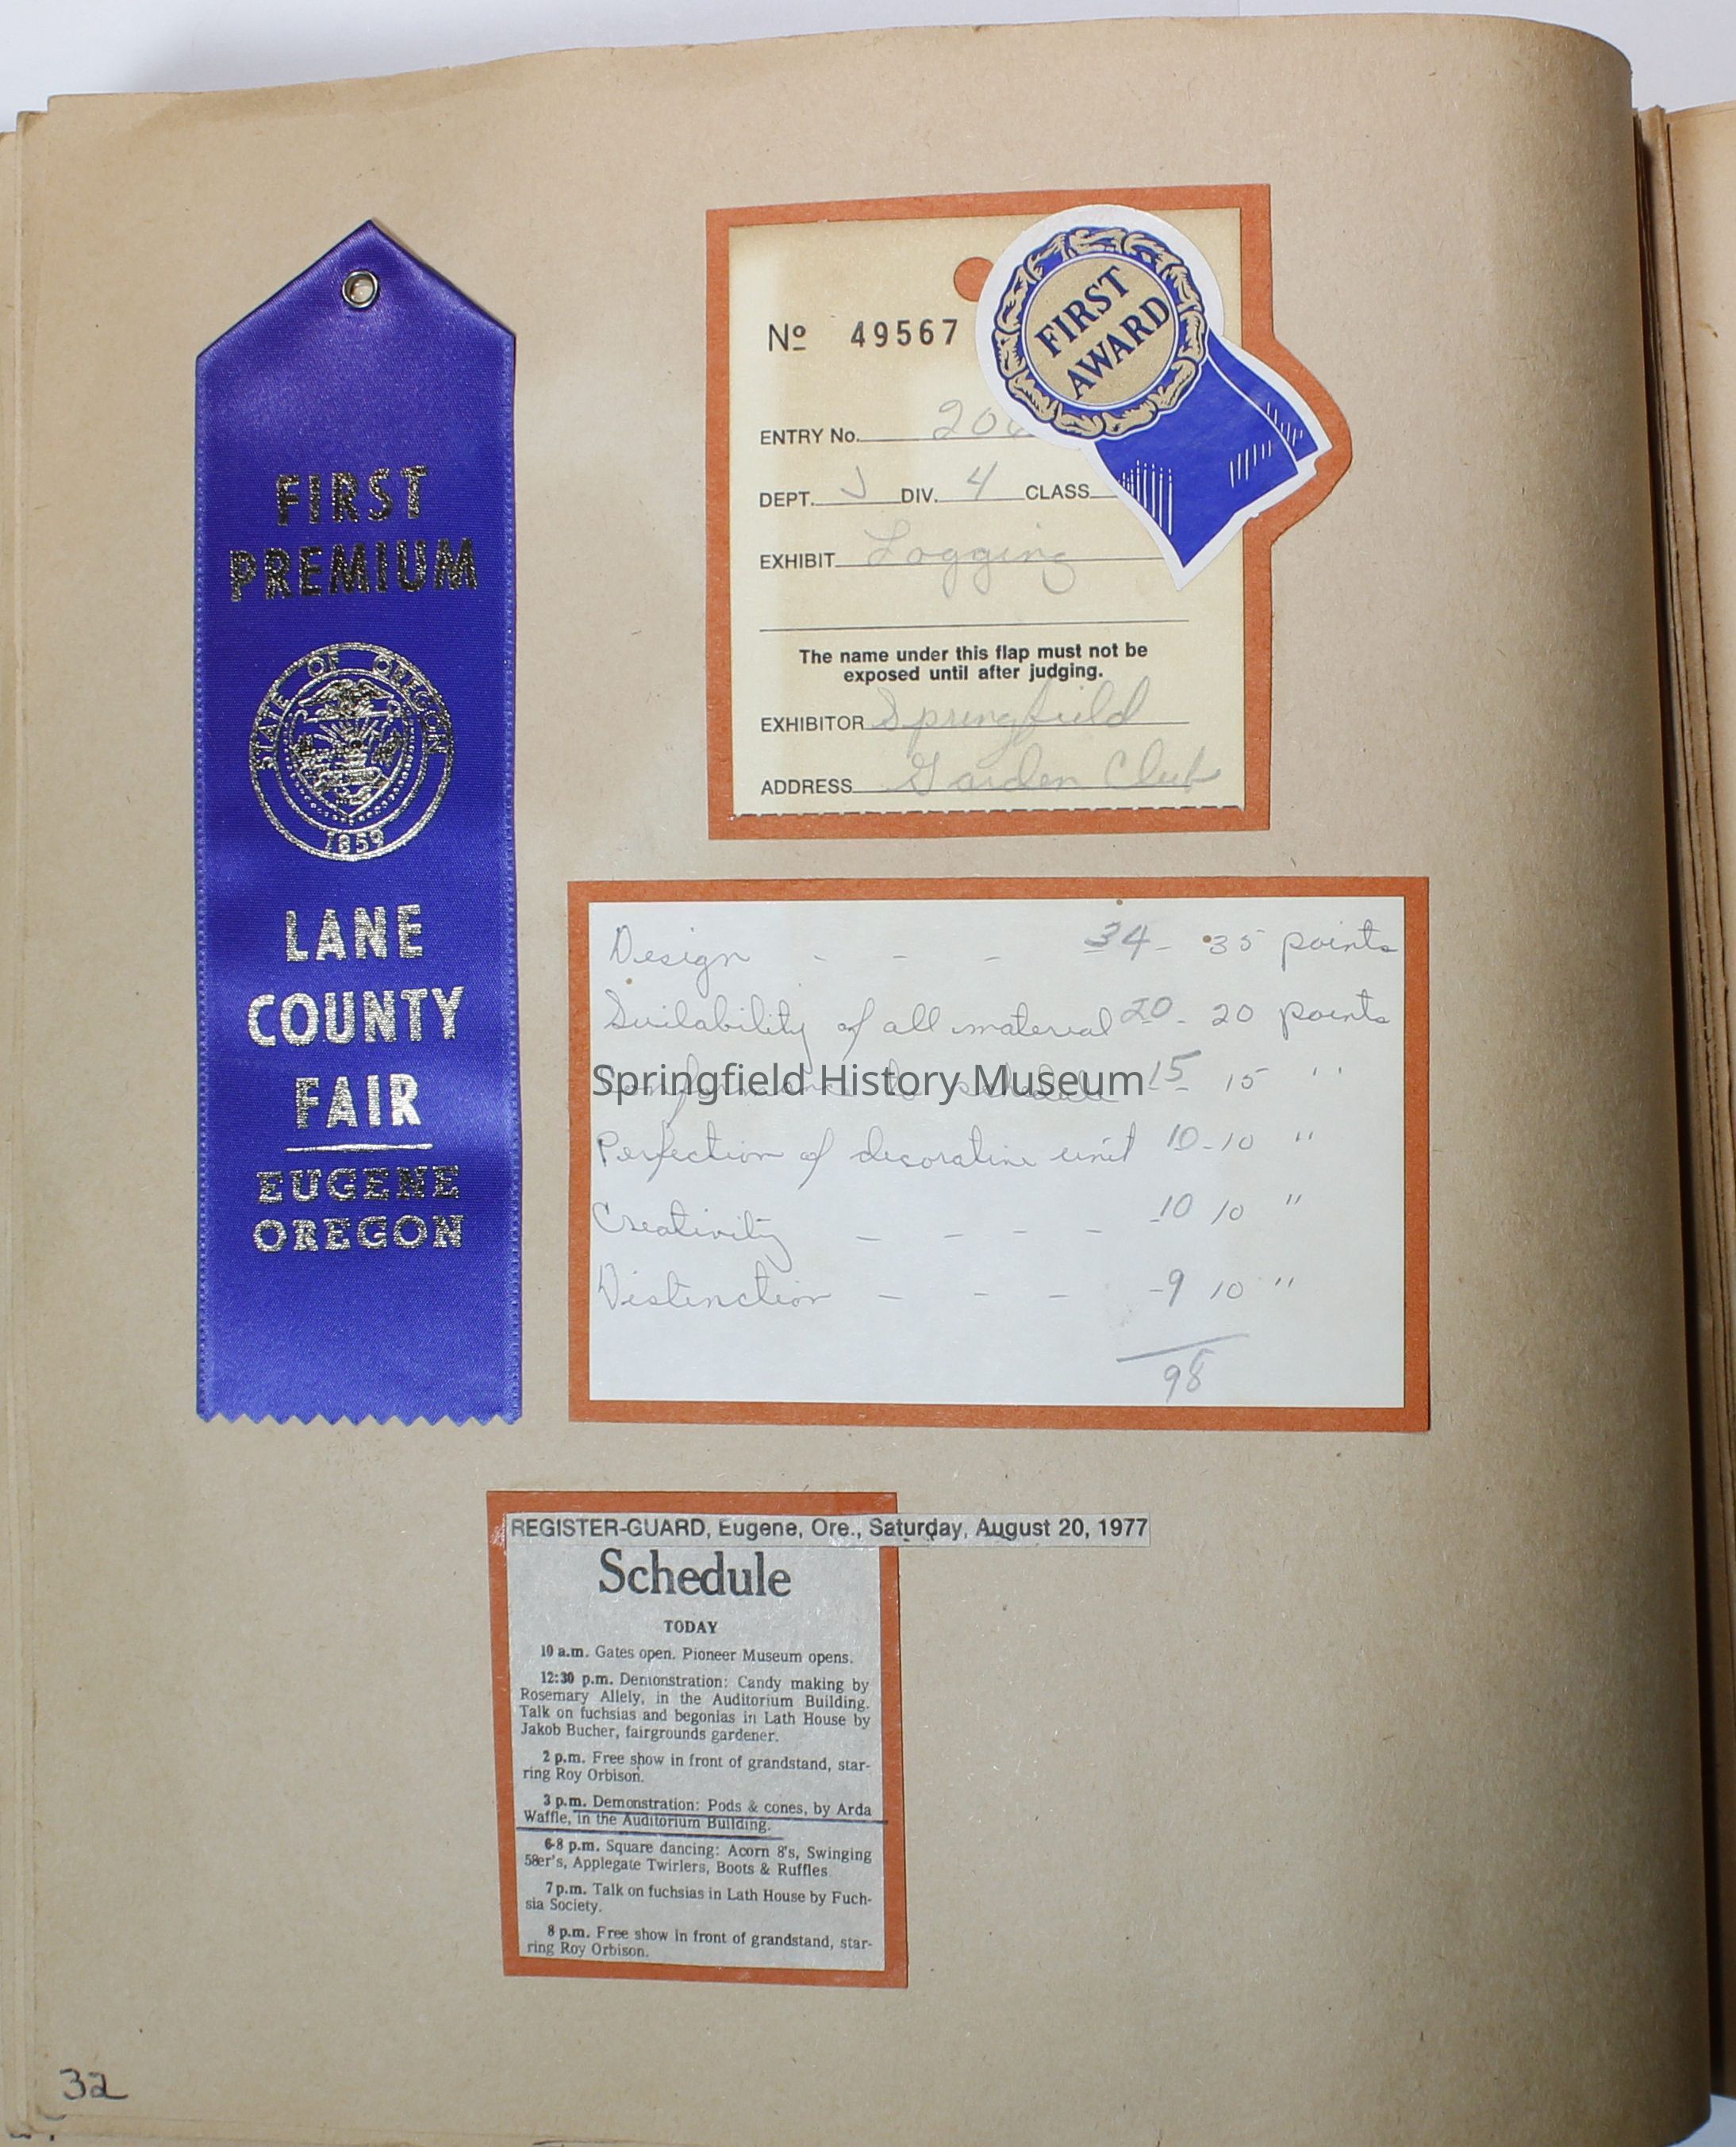 FIRST
PREMIUM
STATE OF OREGON
1859
LANE
COUNTY
FAIR
EUGENE
OREGON
No 49567
FIRST
AWARD
ENTRY No.
DEPT. J DIV. 4 CLASS
EXHIBIT Logging
The name under this flap must not be
exposed until after judging.
EXHIBITOR Springfield
ADDRESS Garden Club
Design - - - 34 - 35 points
Suilability of all material 20 - 20 points
Conformance to schedule 15 - 15 ''
Springfield History Museum
Perfection of decorative unit 10 - 10 "
Creativity - - - - 10 10 "
Distinction - - - -9 10 "
98
REGISTER-GUARD, Eugene, Ore., Saturday, August 20, 1977
Schedule
TODAY
10 a.m. Gates open. Pioneer Museum opens.
12:30 p.m. Demonstration: Candy making by
Rosemary Allely, in the Auditorium Building.
Talk on fuchsias and begonias in Lath House by
Jakob Bucher, fairgrounds gardener.
2 p.m. Free show in front of grandstand, star-
ring Roy Orbison.
3 p.m. Demonstration: Pods & cones, by Arda
Waffle, in the Auditorium Building.
6-8 p.m. Square dancing: Acorn 8's, Swinging
58er's, Applegate Twirlers, Boots & Ruffles
7 p.m. Talk on fuchsias in Lath House by Fuch-
sia Society.
8 p.m. Free show in front of grandstand, star-
ring Roy Orbison.
32